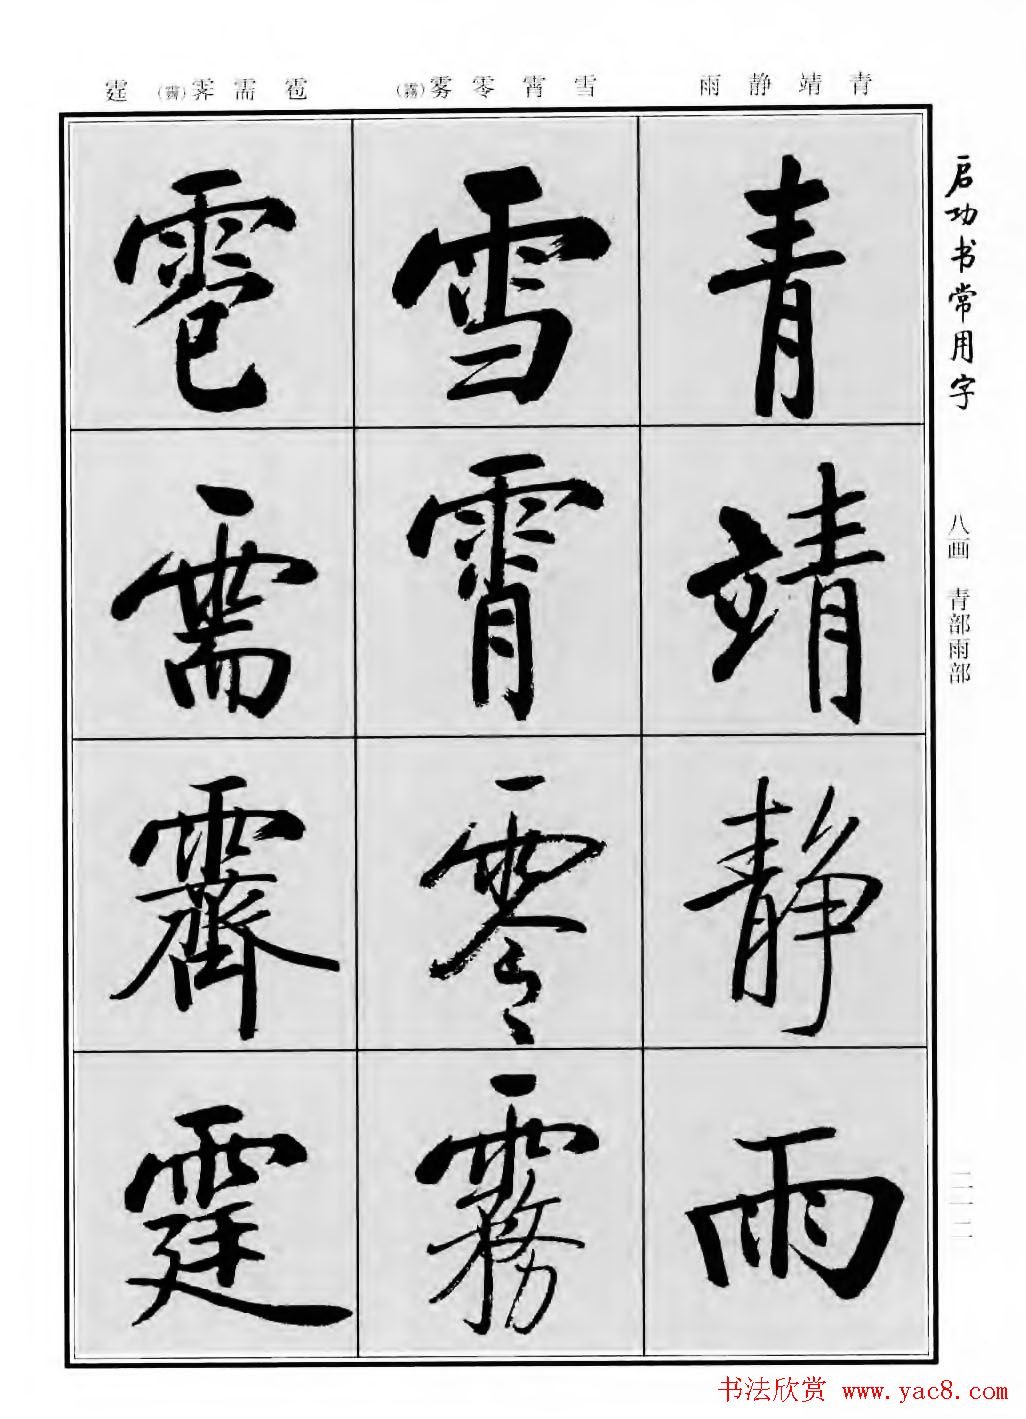 青靖静雨
雪霄零雾(霧)
雹需霁(霽)霆
启功书常用字
八画 青部雨部
二一二
青
靖
静
雨
雪
霄
零
霧
雹
需
霽
霆
书法欣赏 www.yac8.com